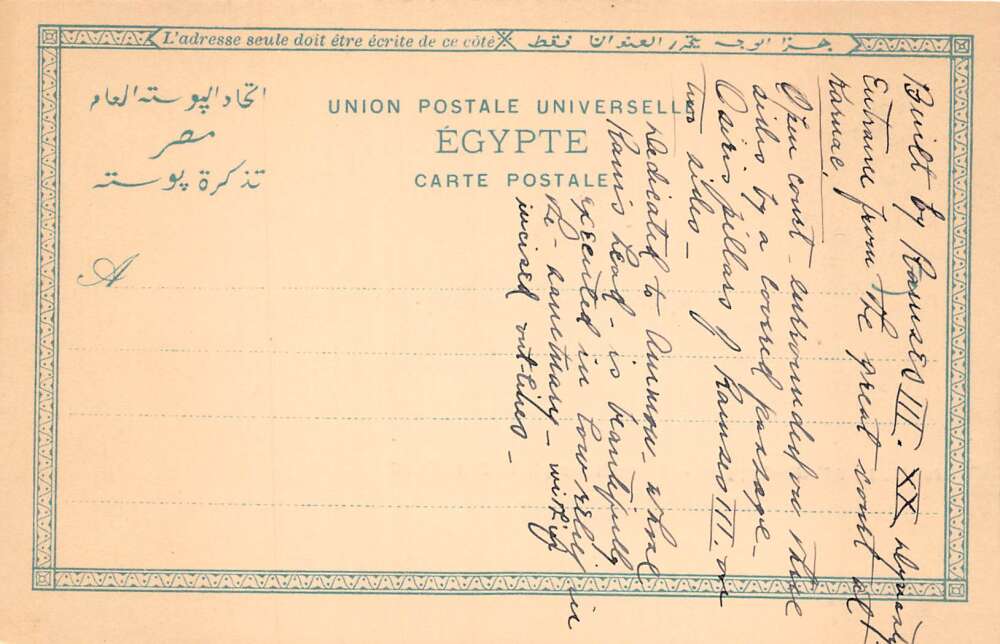 L'adresse seule doit être écrite de ce côté
هذا الوجه يتحرر العنوان فقط
اتحاد البوسته العام
مصر
تذكرة بوسته
UNION POSTALE UNIVERSELLE
ÉGYPTE
CARTE POSTALE
A
Built by Ramses III. XX dynasty
Entrance from the great court at
Karnac.
Open court - surrounded on three
sides by a covered passage -
Osiris pillars of Ramses III. on
two sides -
Dedicated to Ammon - whose
Rams head - is beautifully
executed in low relief in
the - sanctuary - with
incised outlines -